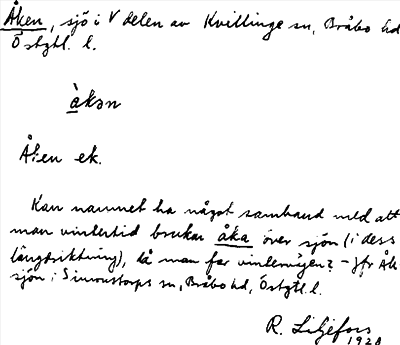 Åken, sjö i V delen av Kvillinge sn, Bråbo hd
Östgtl. l.
àkən
Åken ek.
Kan namnet ha något samband med att
man vintertid brukar åka över sjön (i dess
längdriktning), då man far vintervägen? – Jfr Åk
sjön i Simonstorps sn, Bråbo hd, Östgtl. l.
R. Liljefors